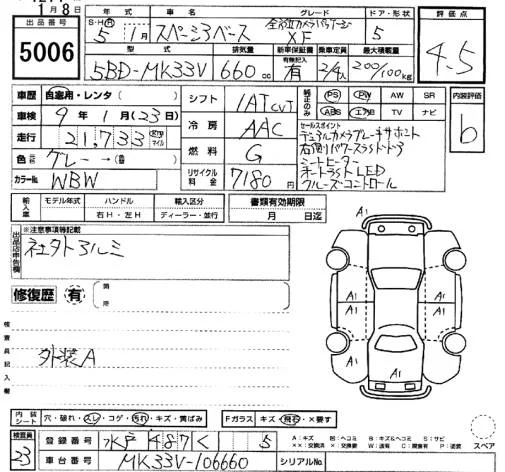 1月8日
出品番号
5006
年式 車名 グレード ドア・形状
S・H・R 5年 1月 スペーシアベース 全方位カメラパッケージ XF 5
評価点
4.5
型式 排気量 新車保証書 乗車定員 最大積載量
5BD-MK33V 660cc 有無記入 有 2/4人 200/100kg
車歴 自家用・レンタ( )
車検 9年 1月(23日)
走行 21,733 km マイル
色 グレー→(替)
カラーNo. WBW
シフト 1AT CVT
冷房 AAC
燃料 G
リサイクル料金 7180円
純正のみ PS PW AW SR
ABS エアB TV ナビ
内装評価
b
セールスポイント
デュアルカメラブレーキサポート
右側パワースライドドア
シートヒーター
オートライトLED
クルーズコントロール
輸入車 モデル年式 ハンドル 輸入区分
年 右H・左H ディーラー・並行
書類有効期限
月 日迄
出品店申告欄
※注意事項等記載
社外アルミ
修復歴 有 箇所
検査員記入欄
外装A
A1 A1
A1
A1 A1
A1
内装シート 穴・破れ・スレ・コゲ・汚れ・キズ・黄ばみ
Fガラス キズ・飛石・×要す
検査員
23
登録番号 水戸 487 く 5
車台番号 MK33V-106660 シリアルNo.
A:キズ E:エヘコミ B:キズ&ヘコミ S:サビ
××:交換済 ×:要交換 W:波有 C:腐食有 P:塗装
スペア